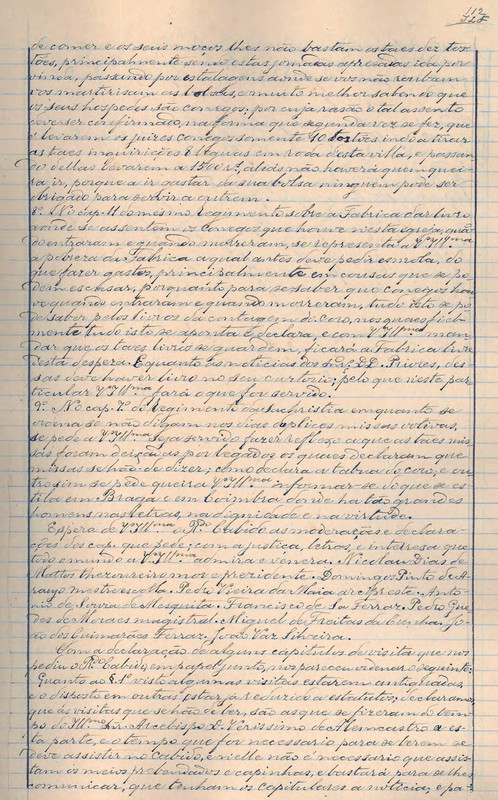 112
de comer e os seus moços lhes não bastam os taes dez tos
tões, principalmente sendo estas jornadas apressadas ida por
vinda, passando por estalagens aonde se vos não roubam
vos martirisam as bolsas, e muito melhor sabendo que
os seus hospedes são conegos; por cuja rasão o tal assento
deve ser confirmado, na forma que segunda vez se fez, que
o levarem os juizes conegos somente 10 tostões indo a tirar
as taes inquirições 8 leguas em roda desta villa, e passan
do d'ellas levarem a 1500 rs, aliás não haverá quem quei
ra ir, porque a ir gastar da sua bolsa ninguem pode ser
obrigado para servir a outrem.
8.º No cap. 11 do mesmo regimento sobre a Fabrica dar livro
aonde se assentem os conegos que houve nesta egreja, quan
do entraram e quando morreram, se representa a V. Illma
a pobreza da Fabrica a qual antes deve pedir esmola, do
que fazer gastos, principalmente em cousas que se po
dem escusar, porquanto para se saber que conegos hou
ve quando entraram e quando morreram, tudo isto se po
de saber pelos livros da contagem do côro, nos quaes fiel
mente tudo isto se aponta e declara, e com V. Illma man
dar que os taes livros se guardem, ficará a Fabrica livre
desta despeza. E quanto ás noticias dos snrs. D. Priores, des
sas deve haver livro no seu cartorio; pelo que neste par
ticular V. Illma fará o que for servido.
9.º No cap. 7.º do Regimento da sachristia emquanto se
ordena se não digam nos dias duplices missas votivas,
se pede a V. Illma seja servido fazer reflexo a que as taes mis
sas foram deixadas por legados os quaes declaram que
missas se hão de dizer; como declara a tabua do coro, e ou
trosim se pede queira V. Illma informar-se do que se es
tila em Braga e em Coimbra donde ha tão grandes
homens nas letras, na dignidade e na virtude.
Espera de V. Illma o R.do Cabido as moderações e declara
ções dos cap. que pede; com a justiça, letras, e inteiresa que
todo o mundo a V. Illma admira e venera. Nicolau Dias de
Mattos thezoureiro mor e prezidente. Domingos Pinto de A
raujo mestre escolla. Pedro Vieira da Maia arcipreste. Anto
nio de Souza de Mesquita. Francisco de Sá Ferraz. Pedro Gue
des de Moraes magistral. Miguel de Freitas da Cunha. Jo
ão dos Guimarães Ferraz. João Vaz Silveira.
Com a declaração de alguns capitulos de visita, que nos
pediu o R.do Cabido, em papel junto, nos pareceu ordenar o seguinte:
Quanto ao § 1.º visto algumas visitas estarem antiquadas,
e o disposto em outras estar já reduzido a estatutos; declaramos
que as visitas que se hão de ler, são as que se fizeram do tem
po do Illmo Snr. Arcebispo D. Verissimo de Alencastro a es
ta parte, e o tempo que for necessario para se lerem se
deve assistir no Cabido, em elle não é necessario que assis
tam os meios prebendados e capinhas, e bastará para se lhes
comunicar, que tenham os capitulares a noticia; e pa-